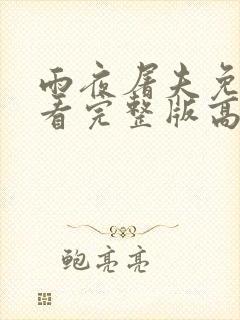 雨夜屠夫免
看完整版高
鲍亮亮